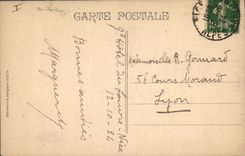 CARTE POSTALE
Gd Hôtel du Louvre - Nice
12-10-24
Bonnes amitiés
Marguerite
Mesdemoiselles R. Gonnard
56 Cours Morand
Lyon